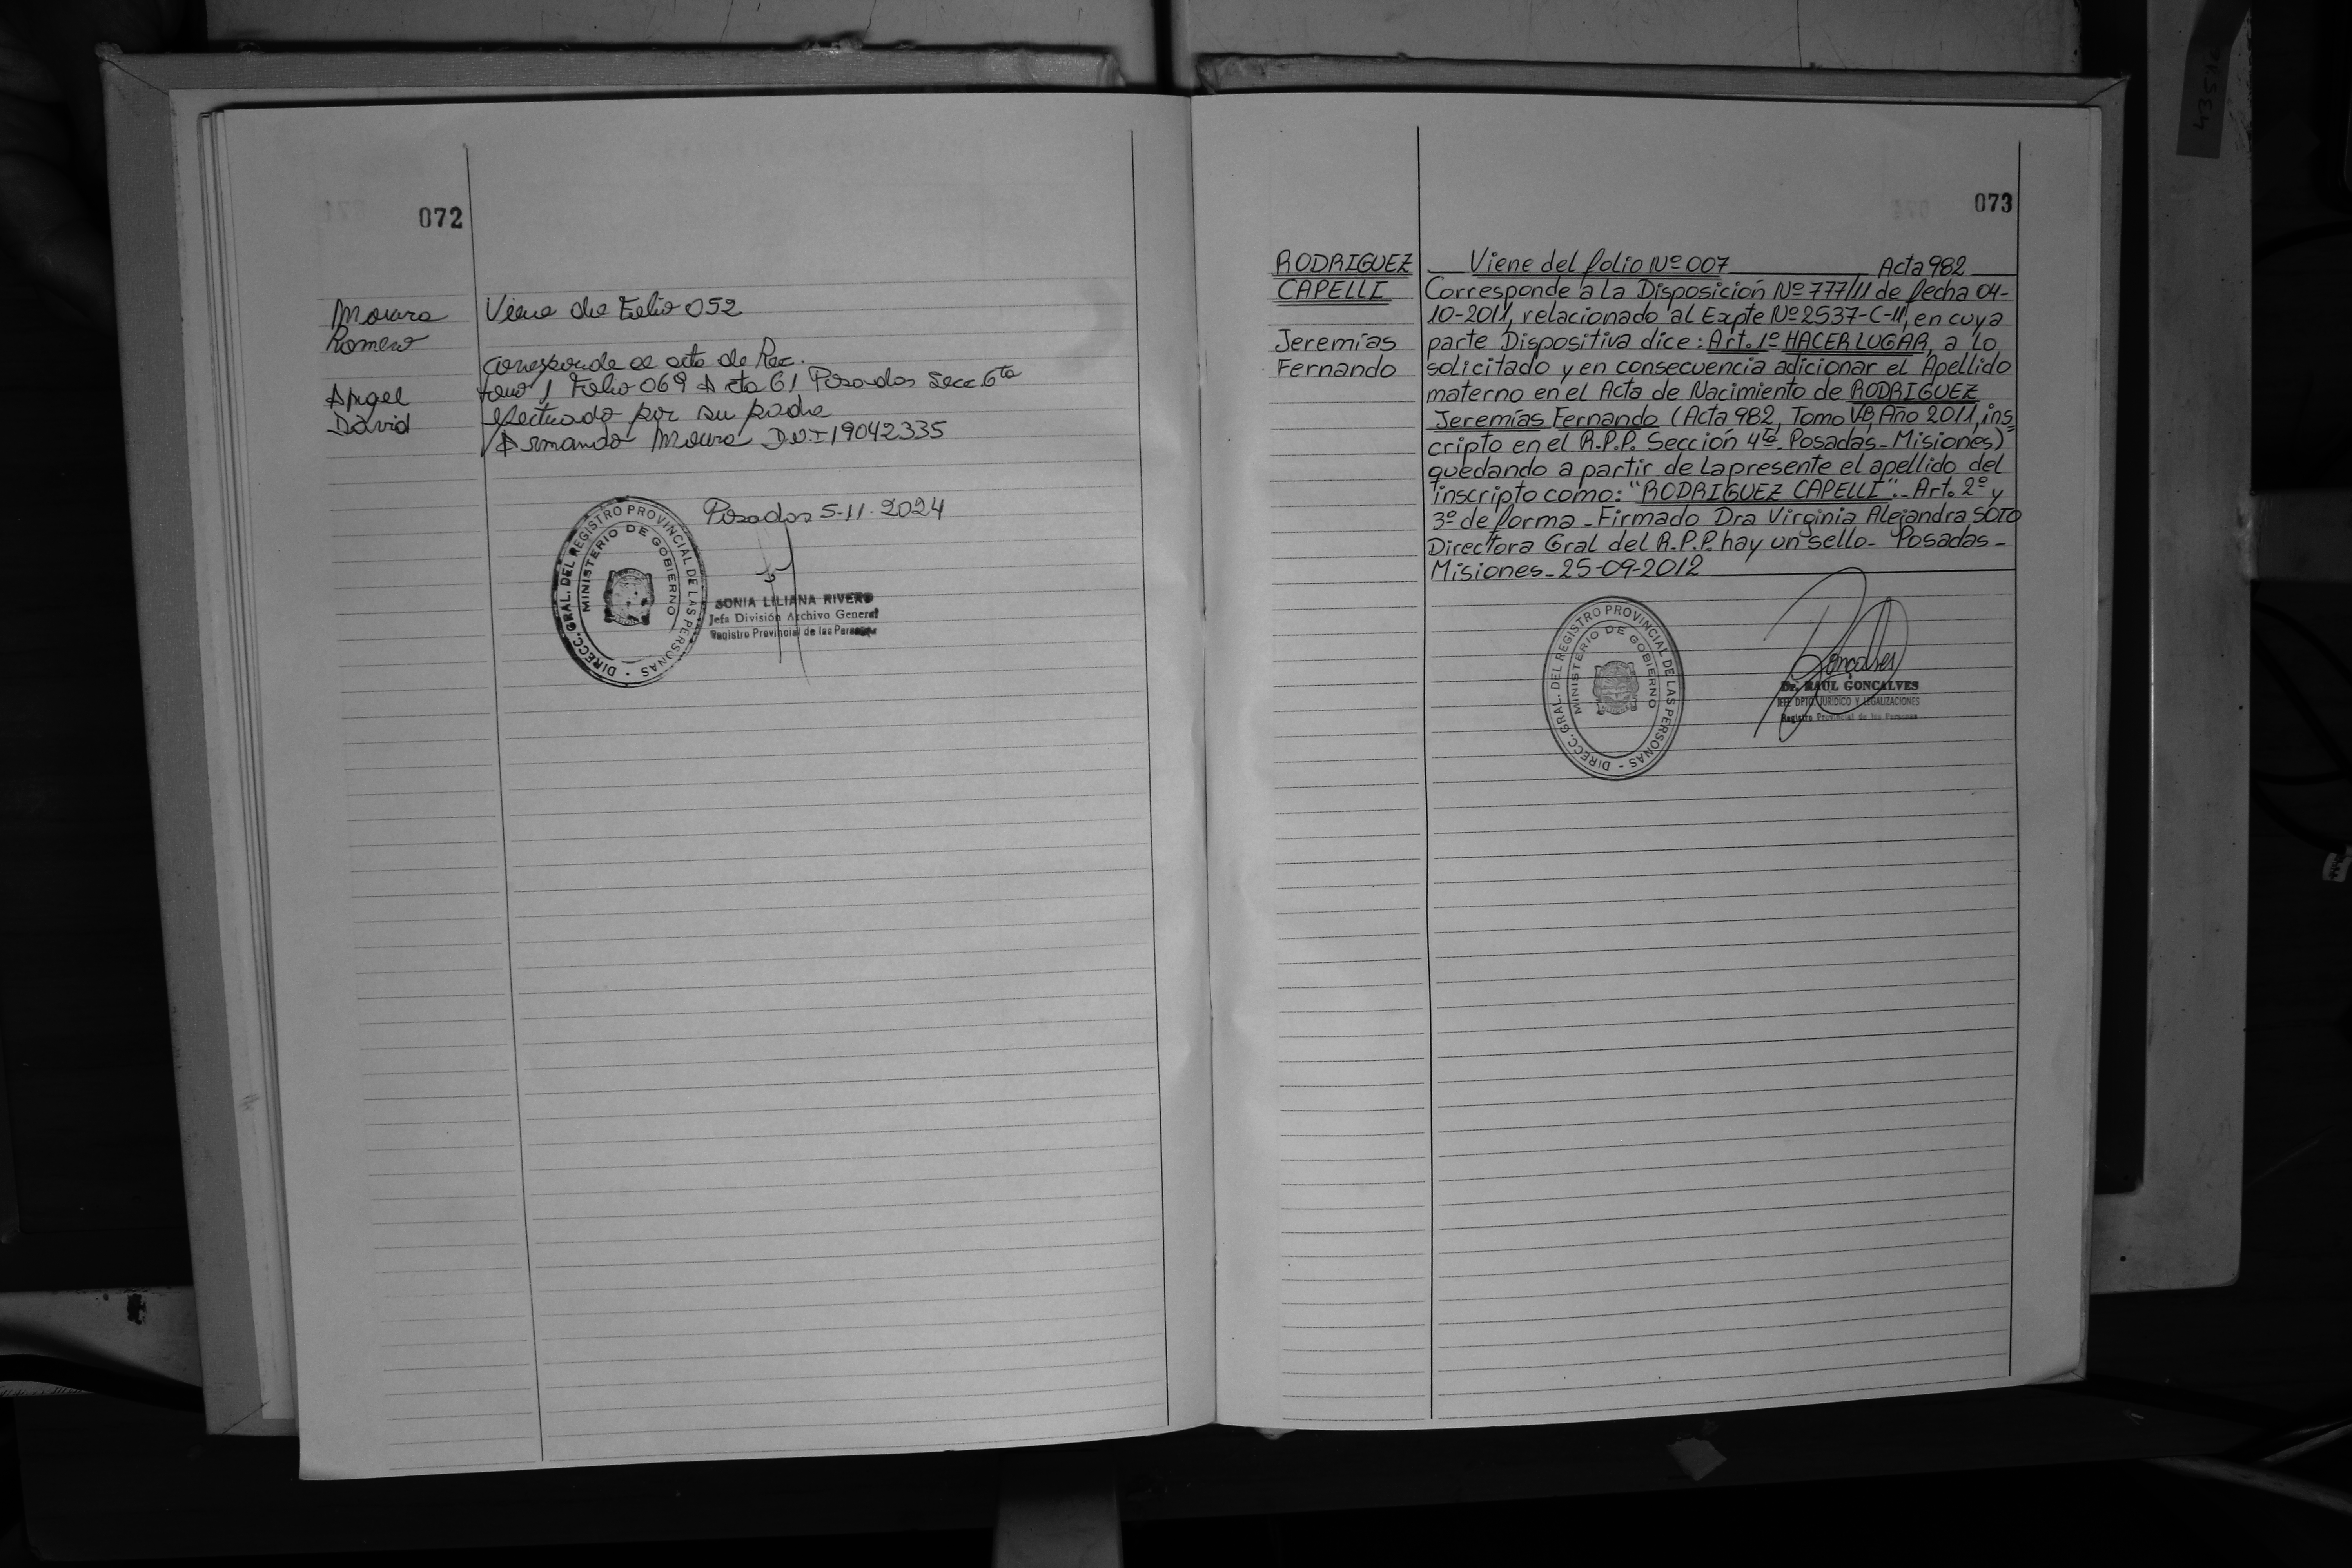 072
Moura
Romero
Angel
David
Viene de Folio 052
corresponde al acta de Rec.
tomo 1 Folio 069 Acta 61 Posadas Secc. 6ta
efectuado por su padre
Armando Moura D.N.I 19042335
Posadas 5-11-2024
DIRECC. GRAL. DEL REGISTRO PROVINCIAL DE LAS PERSONAS -
MINISTERIO DE GOBIERNO
SONIA LILIANA RIVERO
Jefa División Archivo General
Registro Provincial de las Personas
073
RODRIGUEZ
CAPELLI
Jeremías
Fernando
Viene del folio Nº 007 Acta 982
Corresponde a la Disposición Nº 777/11 de fecha 04-
10-2011, relacionado al Expte Nº 2537-C-11, en cuya
parte Dispositiva dice: Art. 1º HACER LUGAR, a lo
solicitado y en consecuencia adicionar el Apellido
materno en el Acta de Nacimiento de RODRIGUEZ
Jeremías Fernando (Acta 982, Tomo VB, Año 2011, ins=
cripto en el R.P.P. Sección 4ta Posadas - Misiones)
quedando a partir de la presente el apellido del
inscripto como: "RODRIGUEZ CAPELLI".- Art. 2º y
3º de forma - Firmado Dra Virginia Alejandra SOTO
Directora Gral del R.P.P. hay un sello - Posadas -
Misiones - 25-09-2012
DIRECC. GRAL. DEL REGISTRO PROVINCIAL DE LAS PERSONAS -
MINISTERIO DE GOBIERNO
Goncalves
Dr. RAUL GONCALVES
JEFE DPTO. JURIDICO Y LEGALIZACIONES
Registro Provincial de las Personas